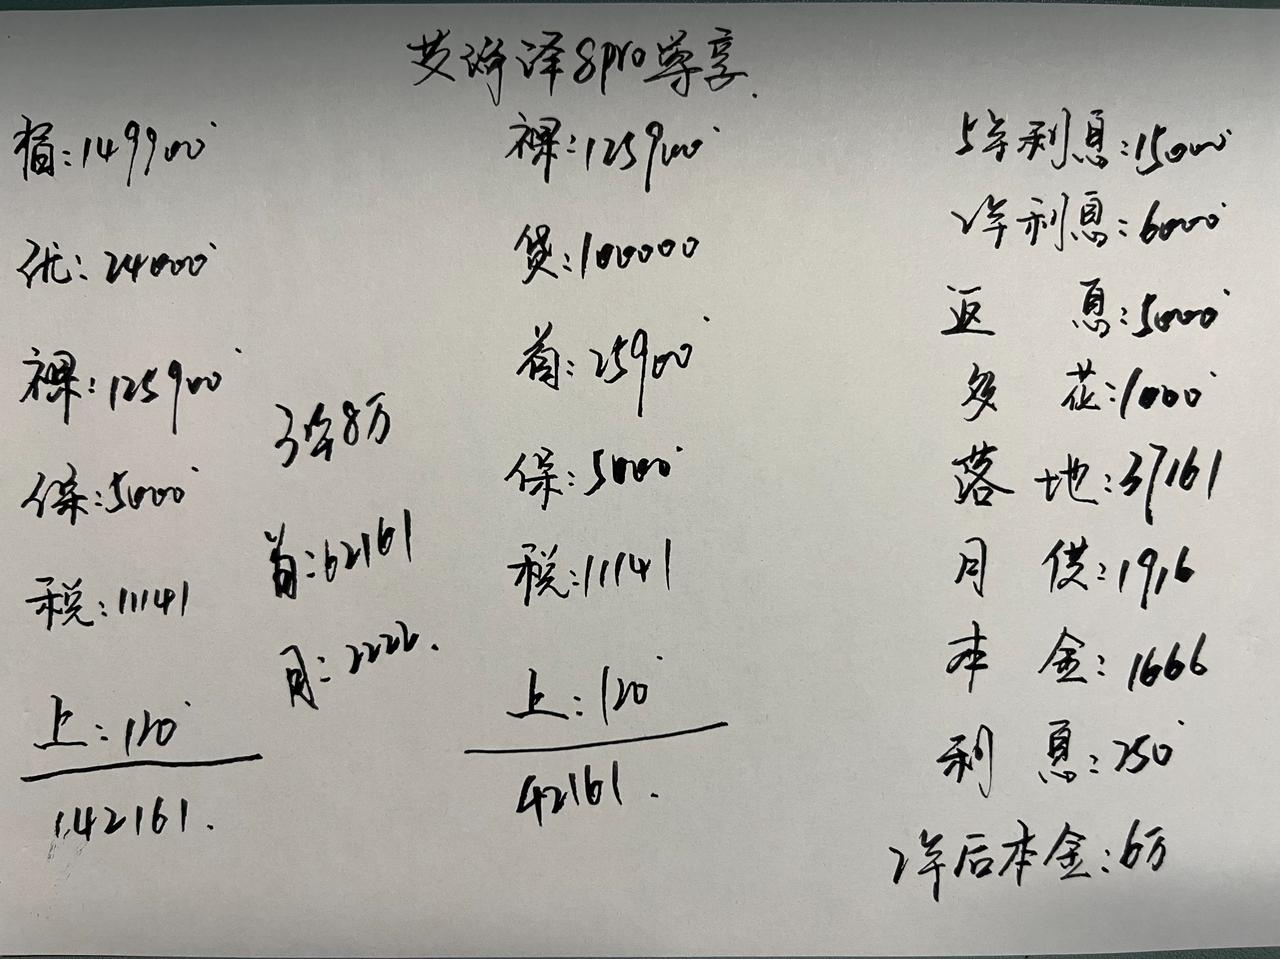 艾瑞泽8pro尊享.
指:149900
优:24000
裸:125900
保:5000
税:11141
上:120
142161.
3年8万
首:62161
月:2222.
裸:125900
贷:100000
首:25900
保:5000
税:11141
上:120
42161.
5年利息:15000
2年利息:6000
返 息:5000
多 花:1000
落 地:37161
月 供:1916
本 金:1666
利 息:250
2年后本金:6万